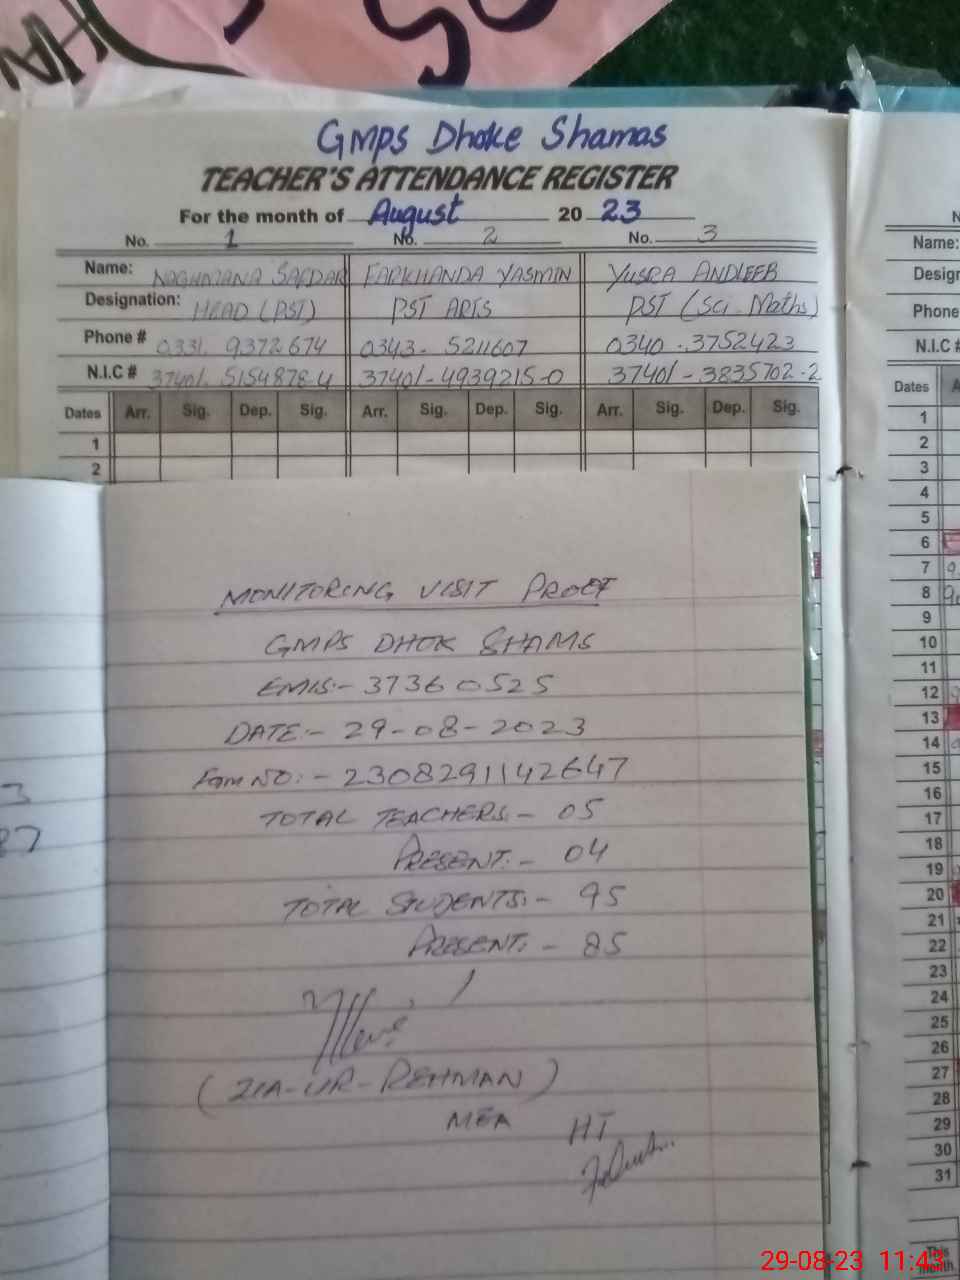 GMPS Dhoke Shamas
TEACHER'S ATTENDANCE REGISTER
For the month of August 20 23
No. 1 No. 2 No. 3
Name: NAGHMANA SAFDAR FARKHANDA YASMIN YUSRA ANDLEEB
Designation: HEAD (PST) PST ARTS PST (Sci. Maths)
Phone # 0331. 9372674 0343- 5211607 0340 .3752423
N.I.C # 37401. 5154878-4 37401-4939215-0 37401-3835702-2
Dates Arr. Sig. Dep. Sig. Arr. Sig. Dep. Sig. Arr. Sig. Dep. Sig.
1
2
MONITORING VISIT PROOF
GMPS DHOK SHAMS
EMIS:- 37360525
DATE:- 29-08-2023
FORM NO:- 2308291142647
TOTAL TEACHERS:- 05
PRESENT:- 04
TOTAL STUDENTS:- 95
PRESENT:- 85
(ZIA-UR-REHMAN)
MEA
HT
3
87
N
Name:
Design
Phone
N.I.C #
Dates A
1
2
3
4
5
6
7
8
9
10
11
12
13
14
15
16
17
18
19
20
21
22
23
24
25
26
27
28
29
30
31
This
month
29-08-23 11:43